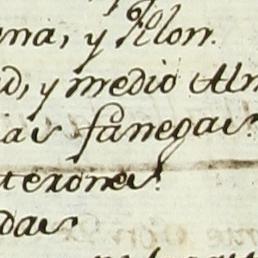 na, y Flon.
d, y medio Alm
ias fanegas.
terones.
das